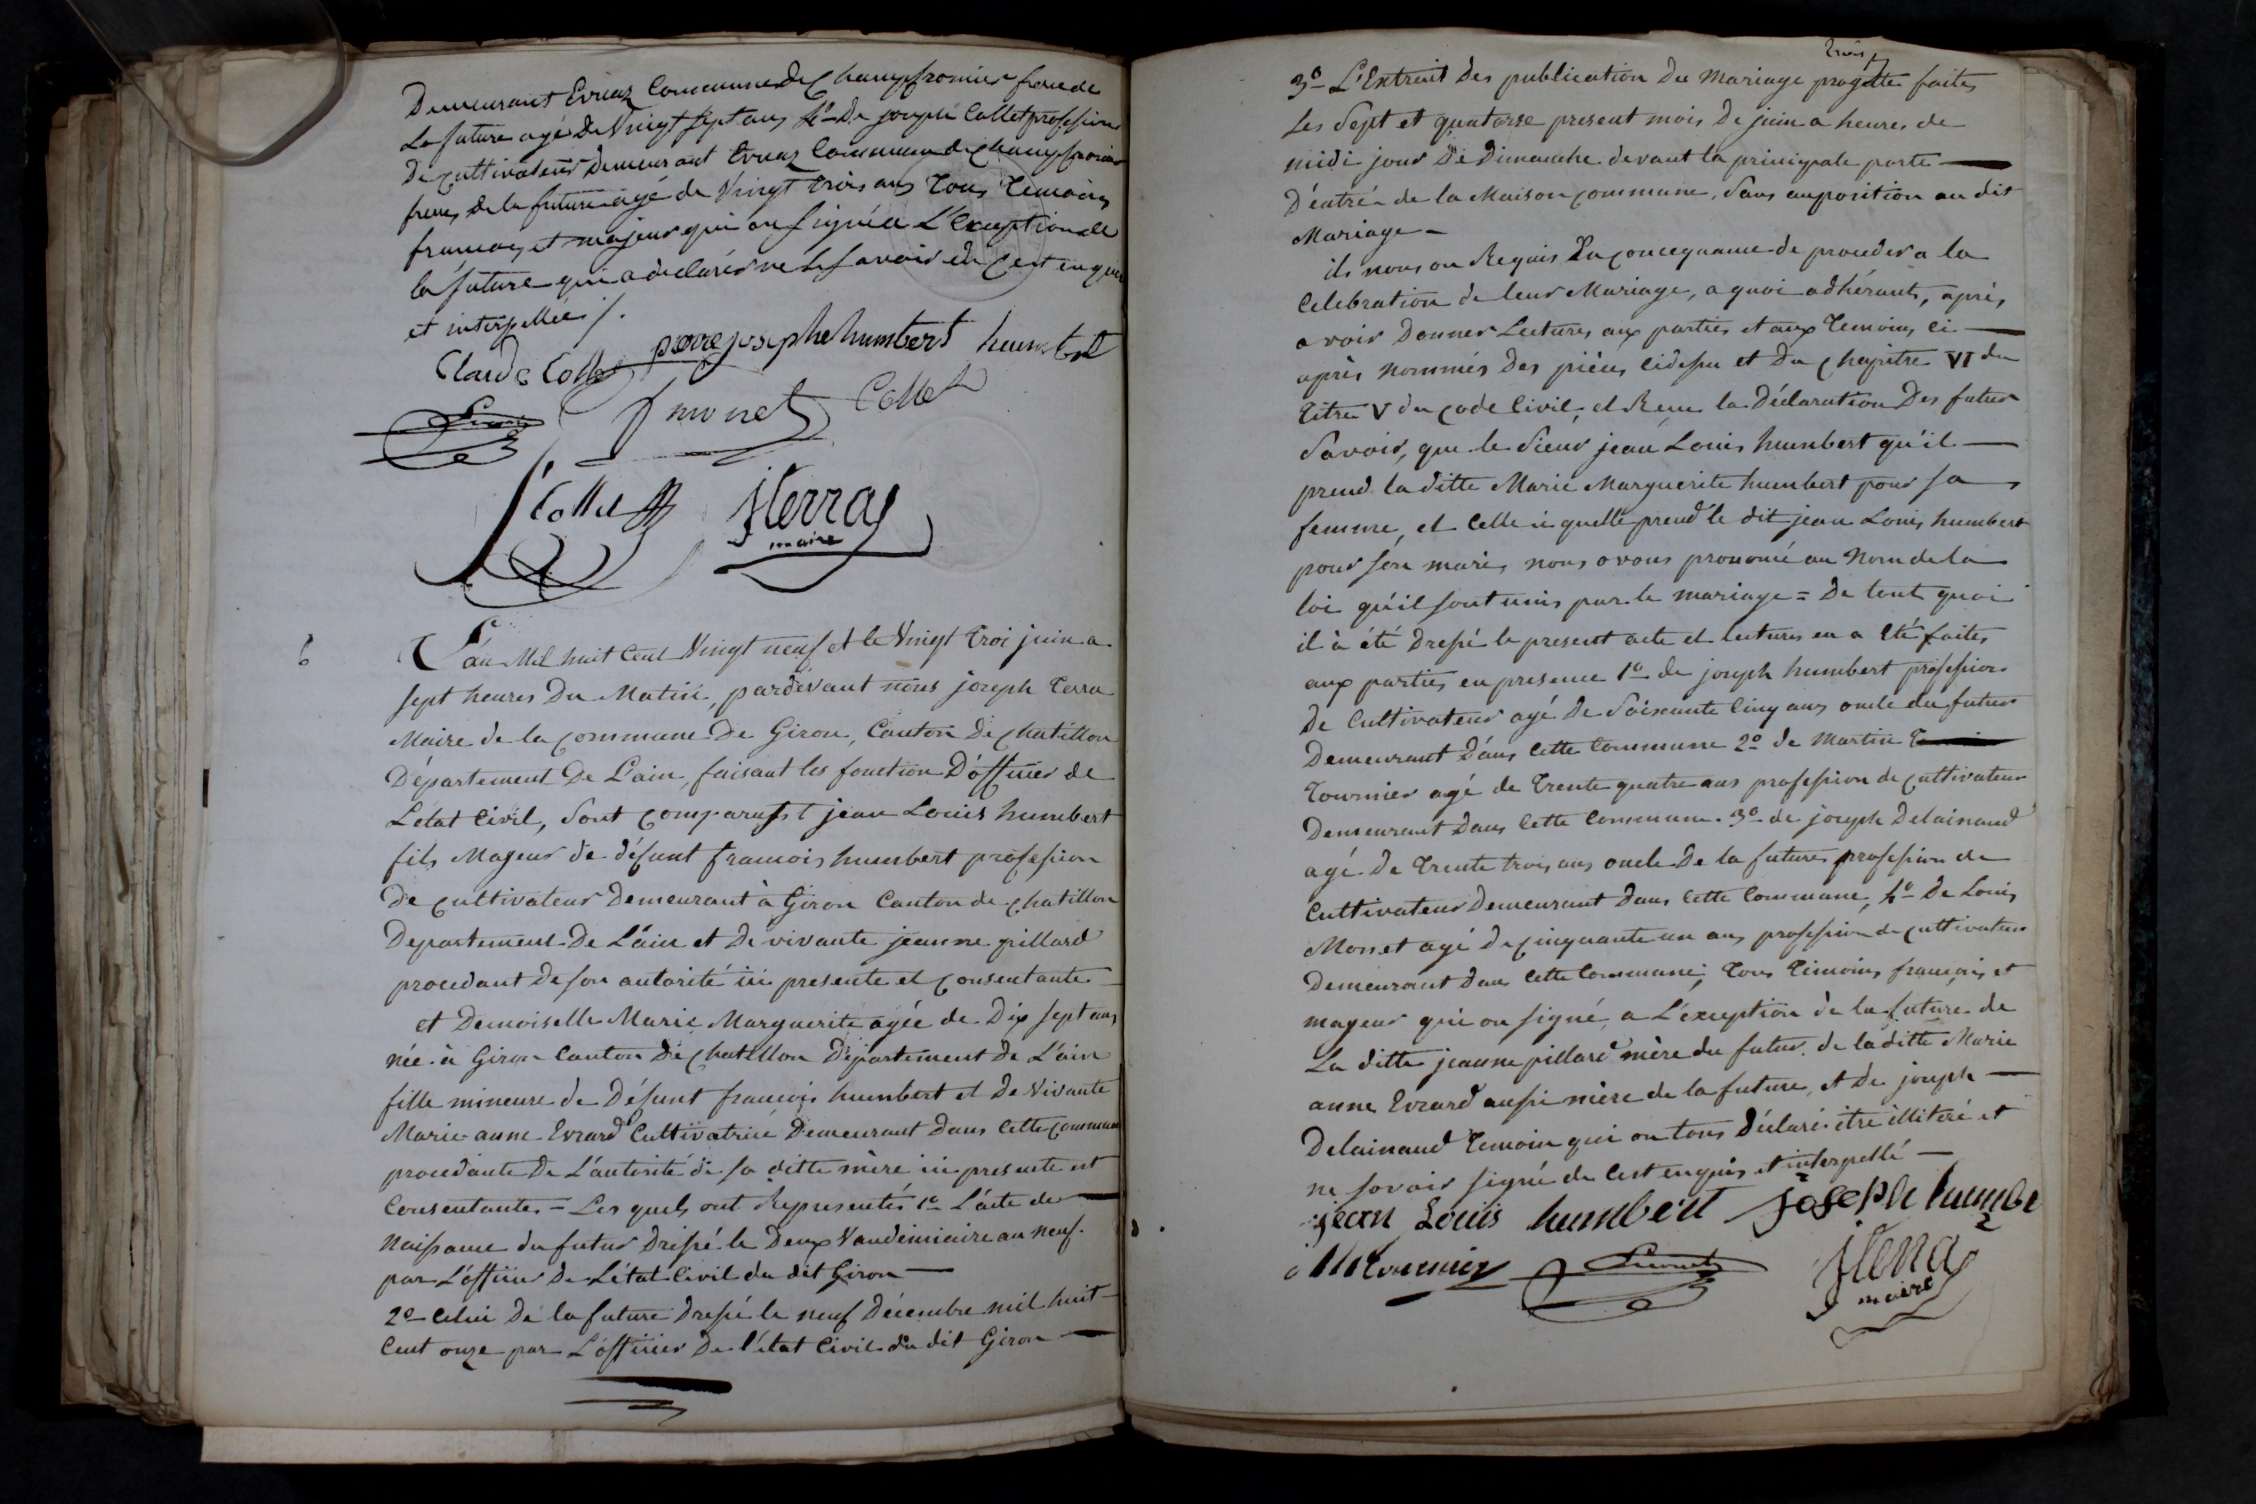 Demeurant Evuaz Commune de Champfromier frere de
La future agé de Vingt sept ans 4º De joseph Collet profession
De cultivateur demeurant Evuaz Commune de Champfromier
freres de la future agé de Vingt trois ans tous temoins
francois et majeur qui on signée a L'exception de
la future qui a declarés ne le savoir de ce en quis
et interpellée /.
Claude Collet pierre josephe humbert humbert
monet Collet
J Collet JTerra
maire
6
L'an Mil huit Cent Vingt neuf et le Vingt troi juin a
sept heures Du Matin, pardevant nous joseph Terra
Maire de la commune De Giron, Canton De chatillon
Département De L'ain, faisant les fonction D'officier de
L'état Civil, Sont comparus t jean Louis humbert
fils Mageur de défunt francois humbert profession
De cultivateur Demeurant à Giron Canton de chatillon
Departement De L'ain et De vivante jeanne pillard
procedant De son autorité ici presente et consentante
et Demoiselle Marie Marguerite agée de Dix sept ans
née à Giron Canton De chatillon Département De L'ain
fille mineure de Défunt francois humbert et De Vivante
Marie anne Evrard Cultivatrice Demeurant Dans Cette commune
procedante De L'autorité de sa ditte mère ici presente et
Consentante = Les quels ont Representés 1º L'acte de
Naissance du futur Dressé le Deux Vandemiaire an neuf
par L'officier De L'état Civil du dit Giron
2º Celui De la future Dressé le neuf Décembre mil huit
Cent onze par L'officier De l'état Civil du dit Giron
3º L'Extrait Des publication Du Mariage progetté faites
Les Sept et quatorse present mois De juin a heures de
midi jour De Dimanche devant la principale porte
D'entrée de la Maison commune, Sans auposition au dit
Mariage
ils nous on Requis En concequance de proceder a la
Celebration de leur Mariage, a quoi adhérant, après
avoir Donner Lectures aux parties et aux temoins ci
après nommés Des pièces cidessu et Du chapitre VI du
titre V du code Civil, et Recue la Déclaration Des futur
Savoir, que le Sieur jean Louis humbert qu'il
prend la ditte Marie Marguerite humbert pour sa
femme, et Celle ci quelle prend le dit jean Louis humbert
pour son mari, nous avons prononcé au Nom de la
loi qu'il sont unis par le mariage = De tout quoi
il à été Dressé le present acte et lectures en a Eté faites
aux parties en presence 1º de joseph humbert profession
De Cultivateur agé De Soixante Cinq ans oncle du futur
Demeurant Dans Cette Commune 2º de Martin
Tournier agé de Trente quatre ans profession de cultivateur
Demeurant Dans Cette Commune. 3º de joseph Delainaud
agé De trente trois ans oncle De la future profession de
Cultivateur Demeurant Dans Cette Commune, 4º De Louis
Monet agé De cinquante un ans profession de cultivateur
Demeurant Dans Cette Commune; tous témoins français et
mageur qui on signé, a L'exception de la future de
La ditte jeanne pillard mère du futur. de la ditte Marie
anne Evrard aussi mère de la future, et De joseph
Delainaud temoin qui on tous Déclaré être illitéré et
ne savoir signé de Cest enquis et interpellé
jean Louis humbert joseph humbe
Mtournier JTerra
maire